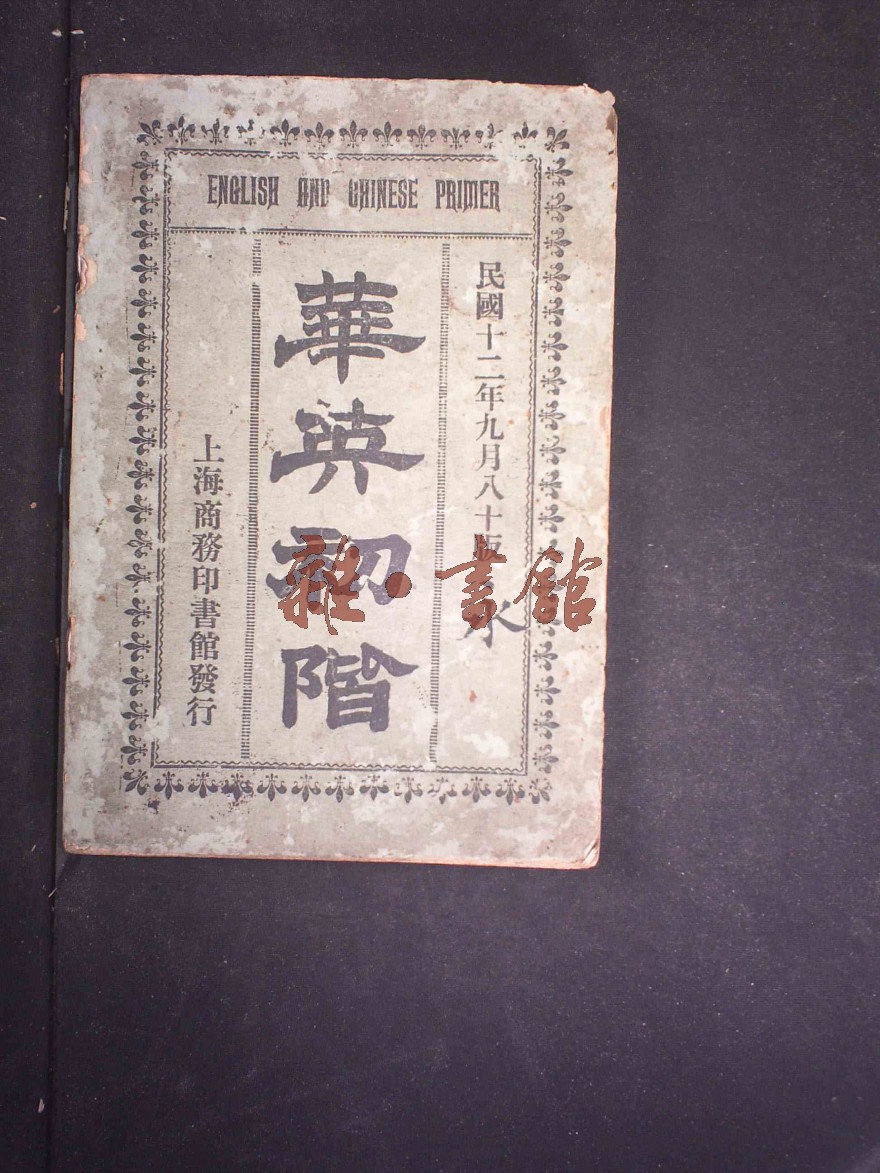 ENGLISH AND CHINESE PRIMER
民國十二年九月八十版
華英初階
上海商務印書館發行
雜·書館